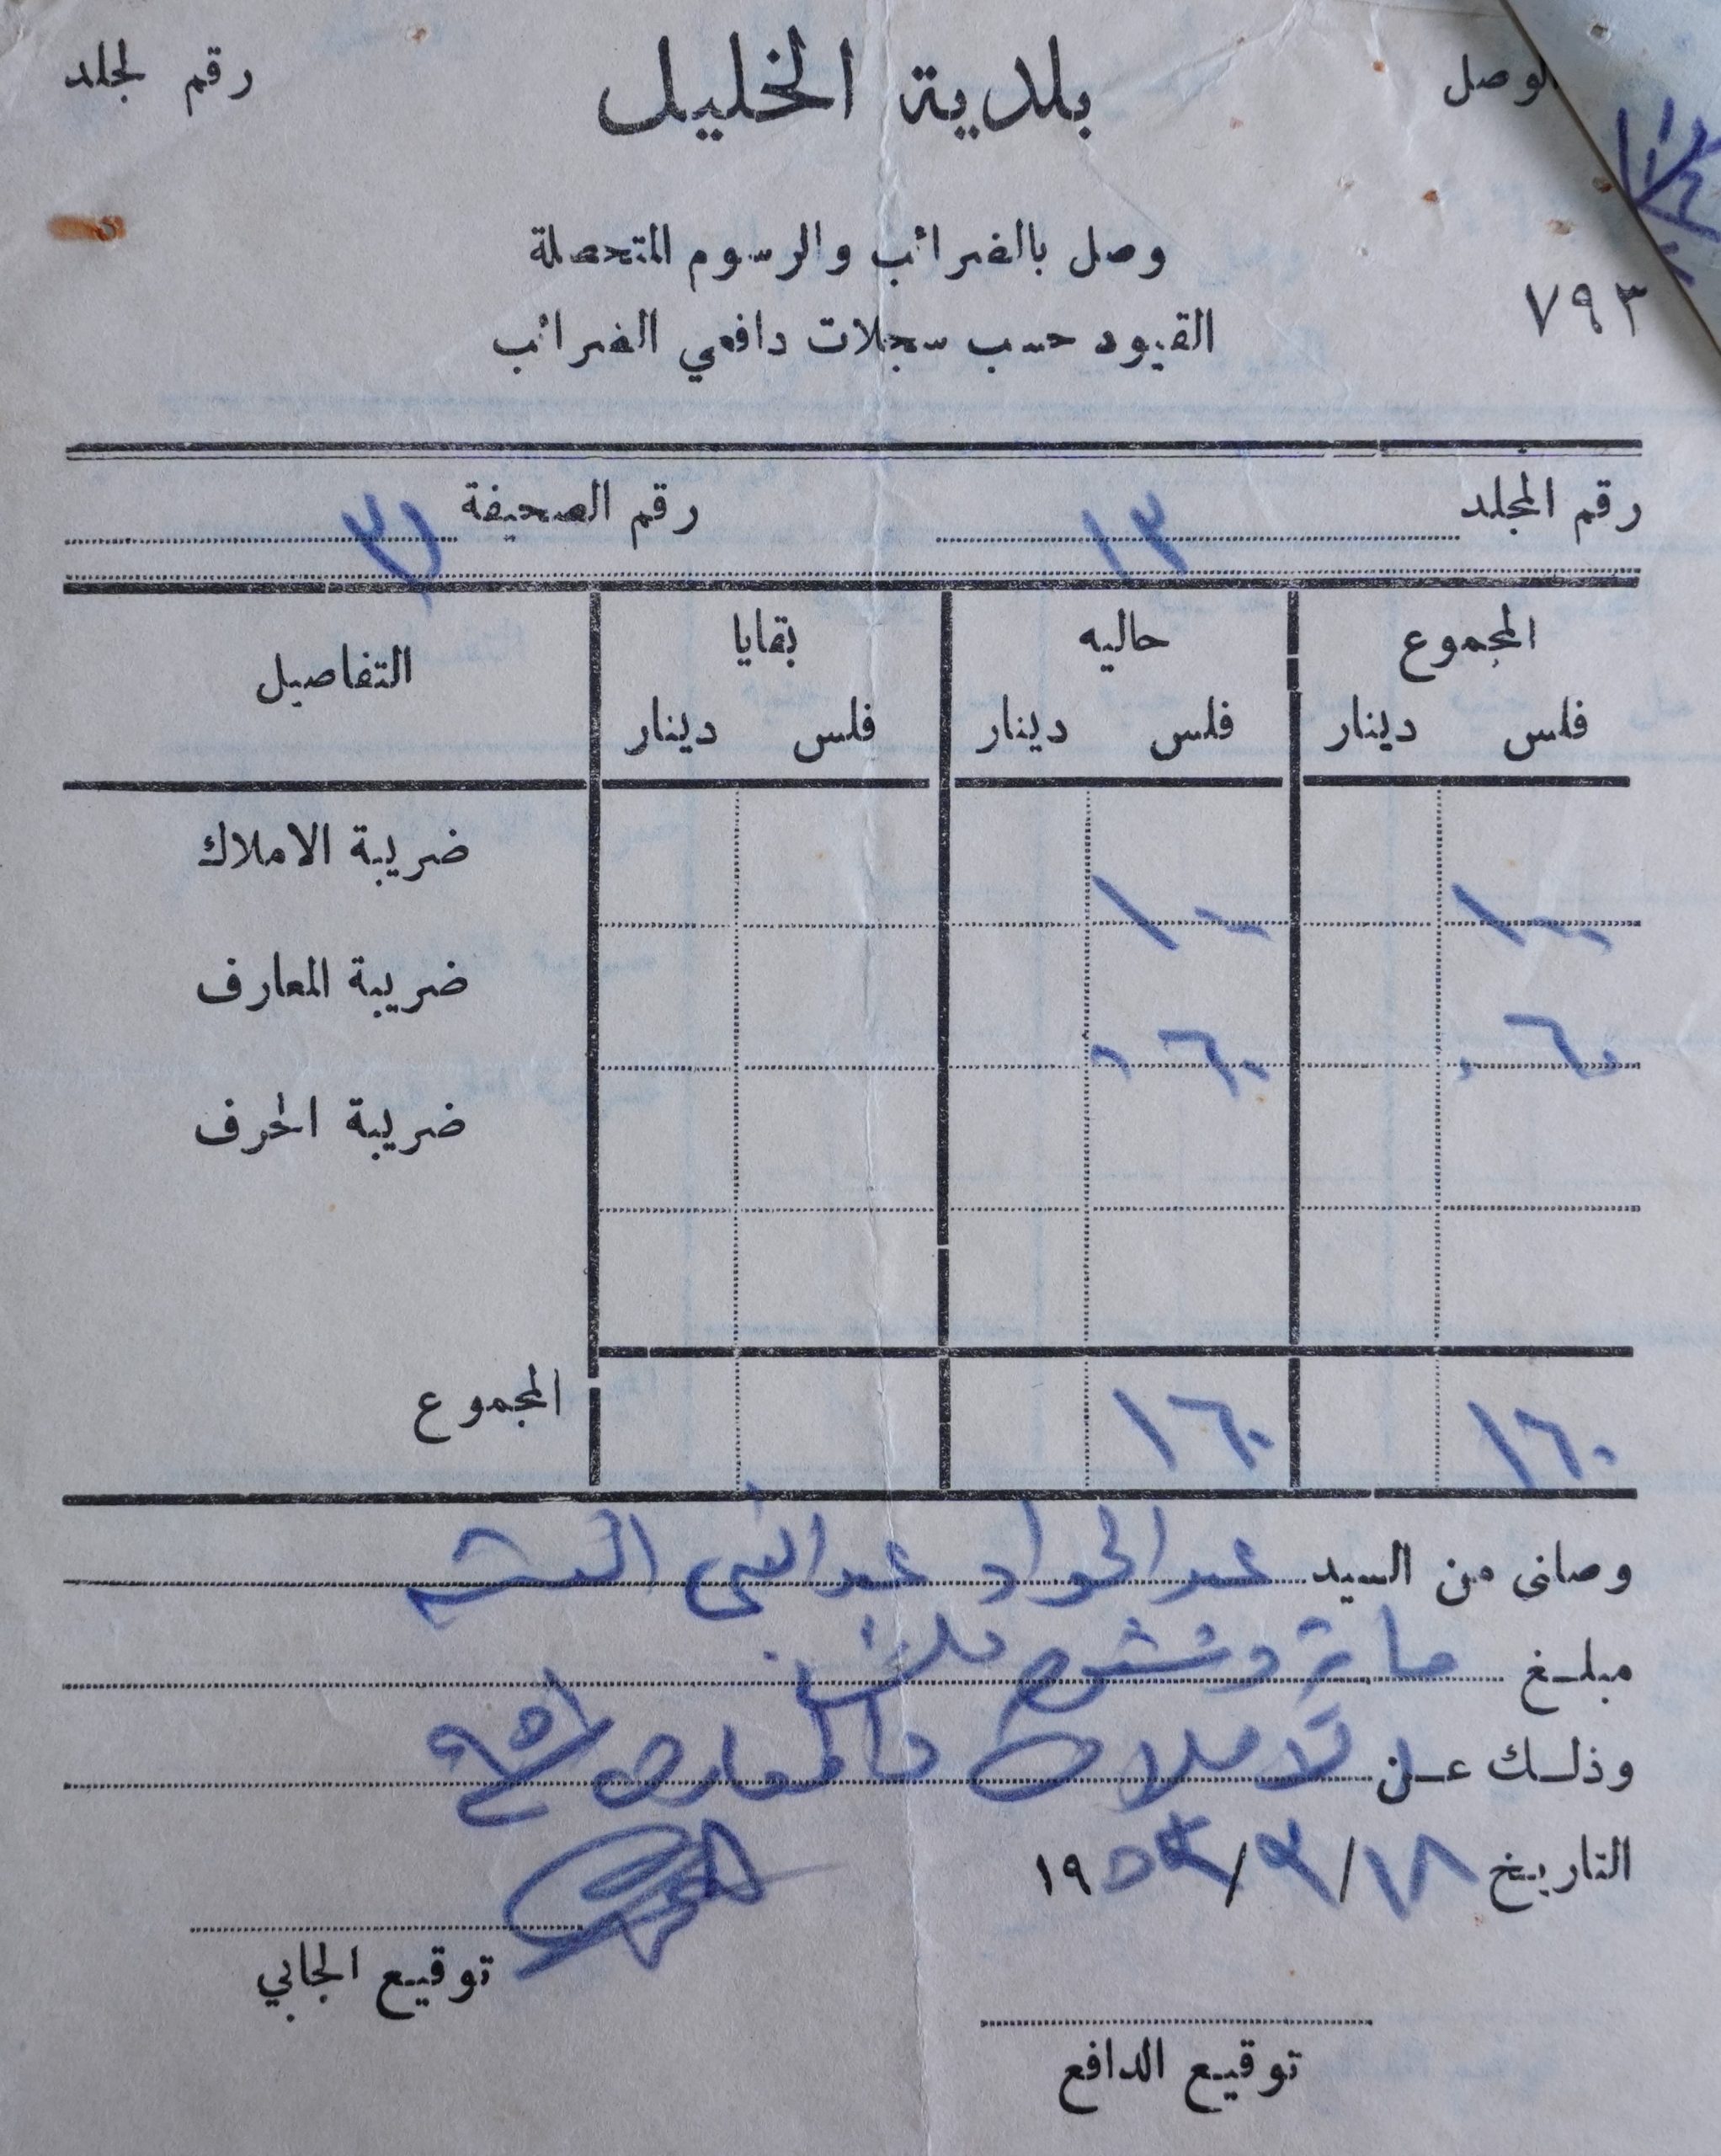 لوصل بلدية الخليل رقم لجلد
وصل بالضرائب والرسوم المتحصلة
٧٩٣
القيود حسب سجلات دافعي الضرائب
رقم المجلد ١٣ رقم الصحيفة ٣١
المجموع حاليه بقايا التفاصيل
فلس دينار فلس دينار فلس دينار
١٠٠ ١٠٠ ضريبة الاملاك
٠٦٠ ٠٦٠ ضريبة المعارف
ضريبة الحرف
١٦٠ ١٦٠ المجموع
وصلني من السيد عبد الجواد عبد النبي
مبلغ مائة وستون فلس
وذلك عن الاملاك والمعارف
التاريخ ١٨/ /١٩٥
توقيع الجابي
توقيع الدافع